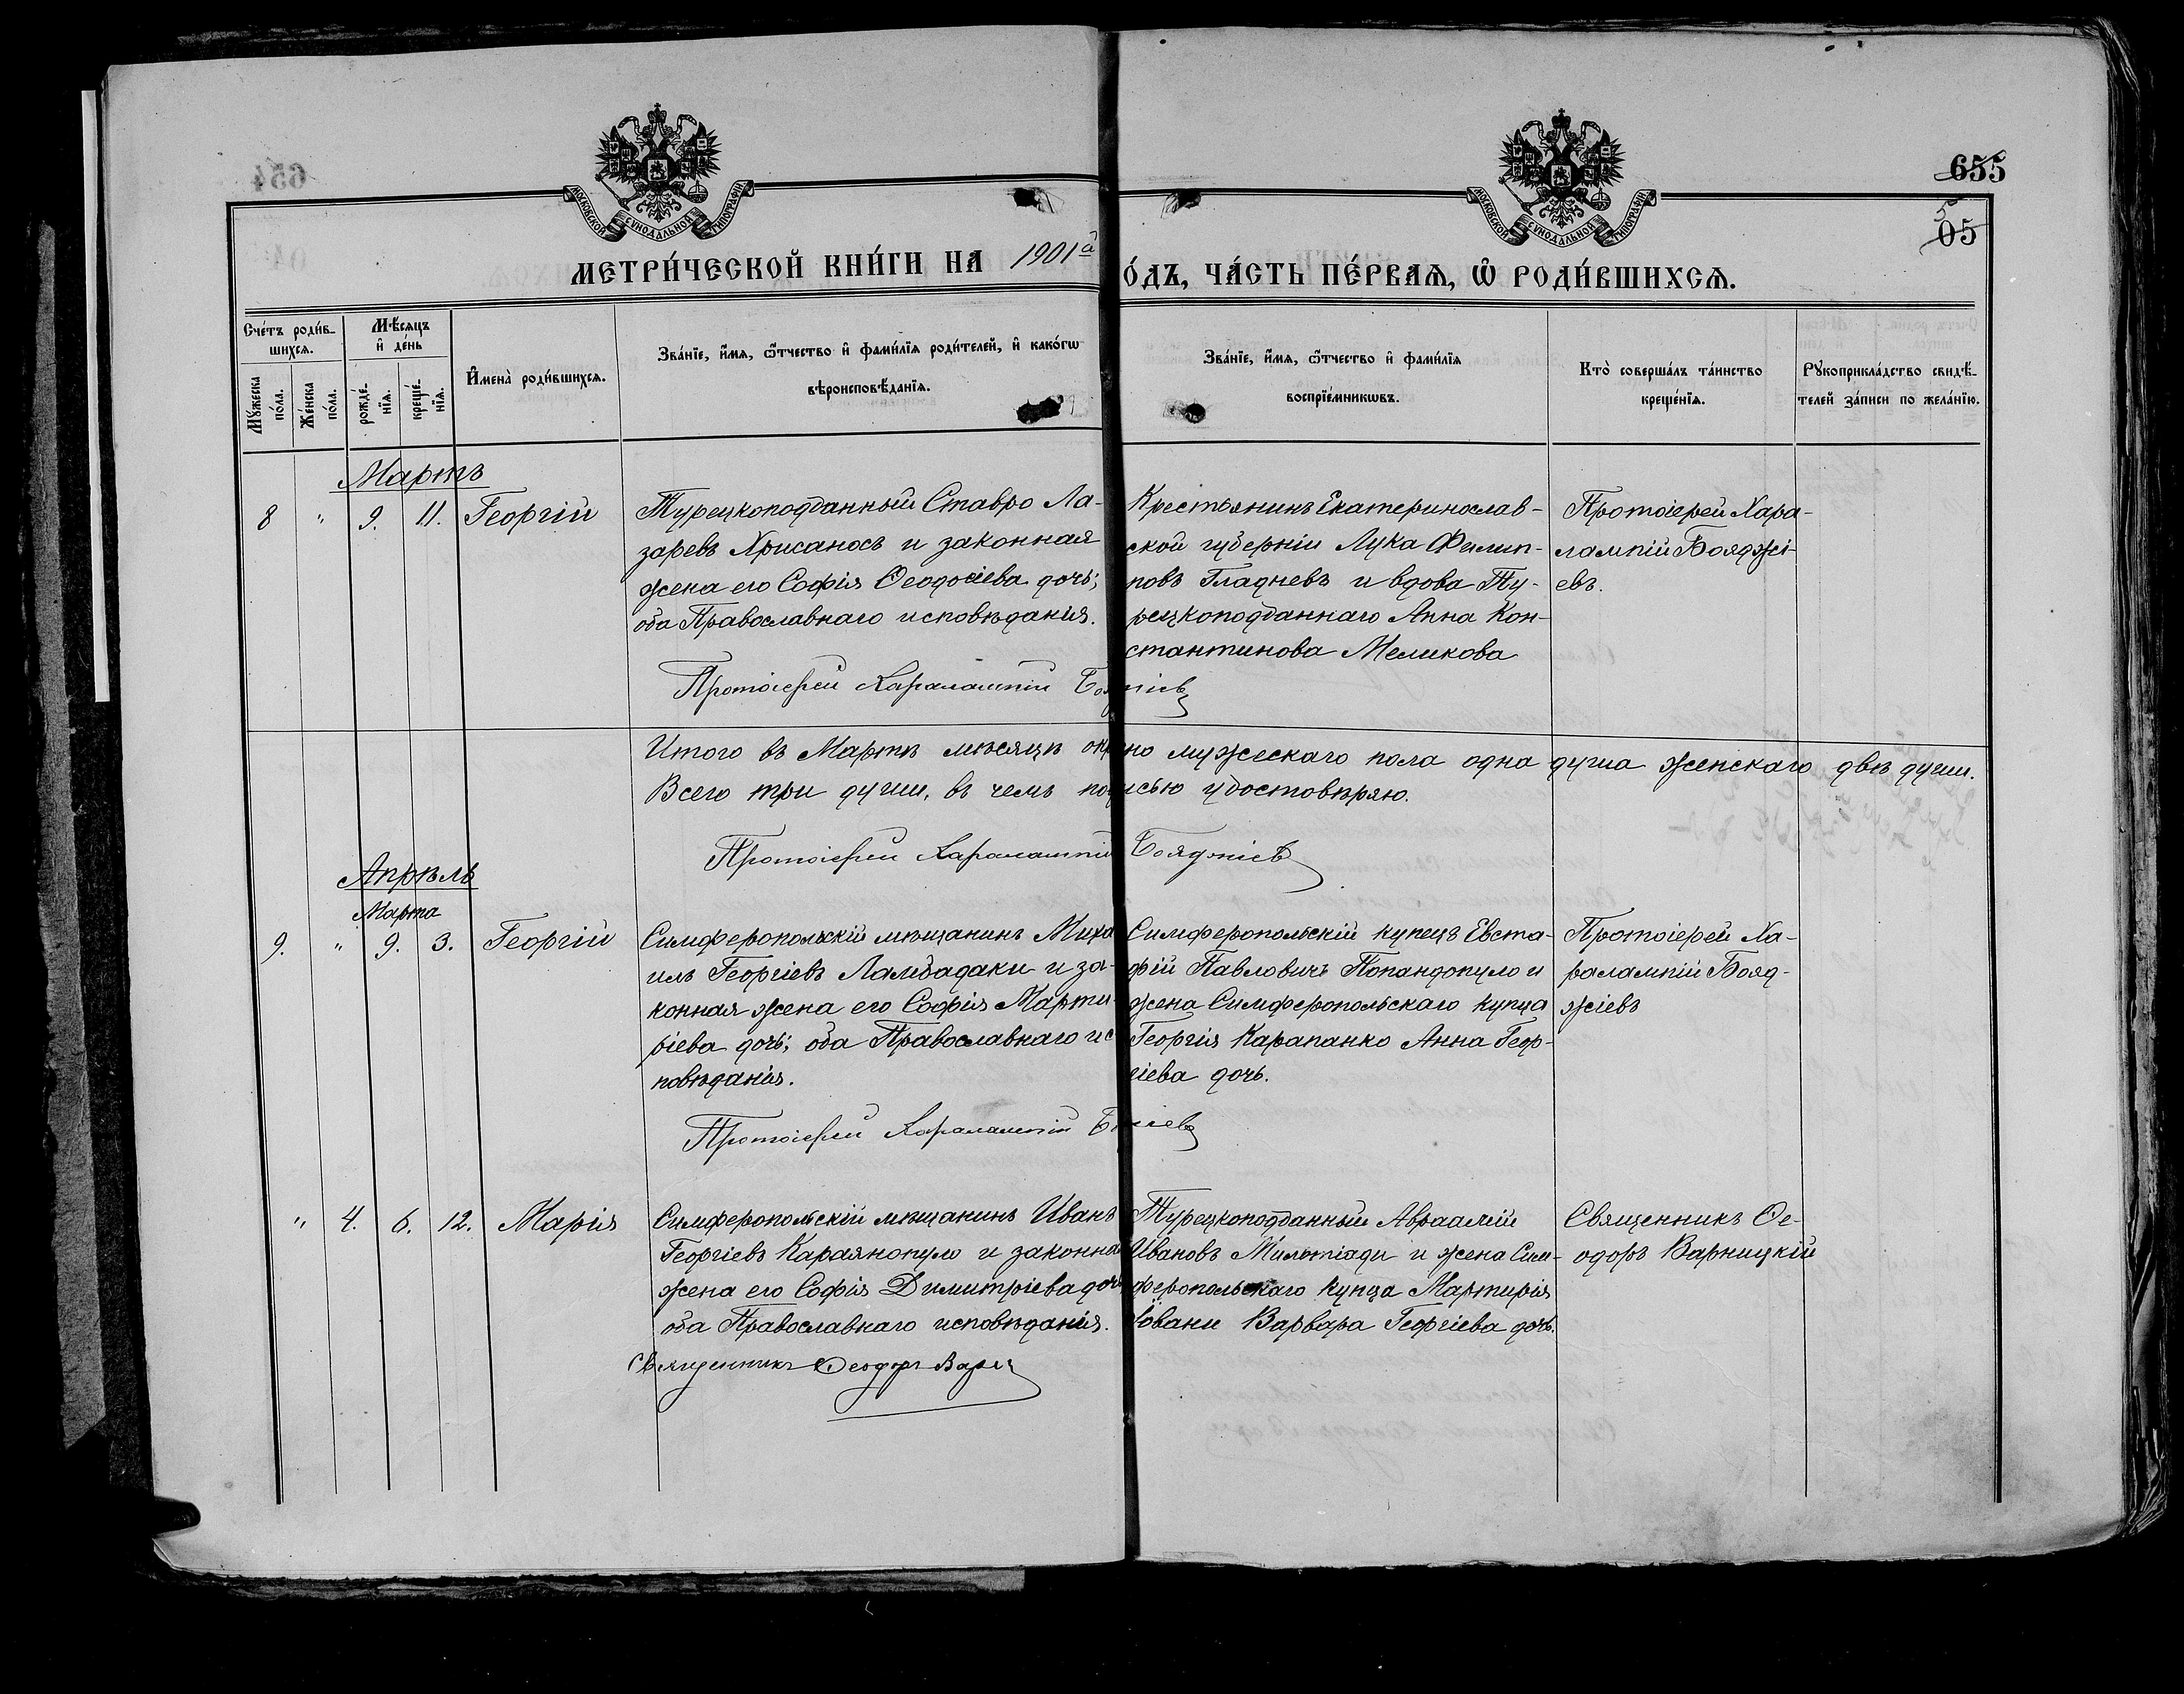 654
655
5
05
МОСКОВСКОЙ СѴНОДАЛЬНОЙ ТИПОГРАФІИ
МОСКОВСКОЙ СѴНОДАЛЬНОЙ ТИПОГРАФІИ
МЕТРИ́ЧЕСКОЙ КНИ́ГИ НА 1901й
О́ДЪ, ЧА́СТЬ ПЕ́РВАѦ, Ѡ҆ РОДИ́ВШИХСѦ.
Сче́тъ роди́в-
шихсѧ.
Мѣ́сѧцъ
и҆ день
Мꙋ́жеска
по́ла.
Же́нска
по́ла.
рожде́-
нїѧ.
креще́-
нїѧ.
И҆мена̀ роди́вшихсѧ.
Зва́нїе, и҆́мѧ, ѻ҆́тчество и҆ фами́лїѧ роди́телей, и҆ како́гѡ
вѣроисповѣ́данїѧ.
Зва́нїе, и҆́мѧ, ѻ҆́тчество и҆ фами́лїѧ
воспрїе́мникѡвъ.
Кто̀ соверша́лъ та́инство
креще́нїѧ.
Рꙋкоприкла́дство свидѣ́-
телей за́писи по жела́нїю.
Мартъ
8 " 9. 11. Георгій
Турецкоподданный Ставро Ла-
заревъ Хрисаносъ и законная
жена его Софія Ѳеодосіева дочь;
оба Православнаго исповѣданія.
Крестьянинъ Екатеринослав-
ской губерніи Лука Филип-
повъ Гладневъ и вдова Ту-
рецкоподданнаго Анна Кон-
стантинова Меликова
Протоіерей Хара-
лампій Бояджі-
евъ.
Протоіерей Харалампій
Итого въ Мартѣ мѣсяцѣ мужескаго пола одна душа женскаго двѣ души.
Всего три души, въ чемъ подписью удостовѣряю.
Протоіерей Харалампій Бояджіевъ
Апрѣль
Марта
9. " 9. 3. Георгій
Симферопольскій мѣщанинъ Миха
илъ Георгіевъ Ламбадаки и за-
конная жена его Софія Марти-
ріева дочь; оба Православнаго ис
повѣданія.
Симферопольскій купецъ Евста-
фій Павловичъ Попандопуло и
жена Симферопольскаго купца
Георгія Карапанко Анна Геор-
гіева дочь.
Протоіерей Ха-
ралампій Бояд-
жіевъ
Протоіерей Харалампій
" 4. 6. 12. Марія
Симферопольскій мѣщанинъ Иванъ
Георгіевъ Караянопуло и законная
жена его Софія Димитріева дочь
оба Православнаго исповѣданія.
Турецкоподданный Авраамій
Ивановъ Мильтіади и жена Сим-
феропольскаго купца Мартирія
Іовани Варвара Георгіева дочь.
Священникъ Ѳе-
одоръ Варницкій
Священникъ Ѳеодоръ